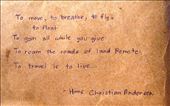 To move, to breathe, to fly,
to float
To gain all while you give
To roam the roads of land Remote:
To travel is to live...
- Hans Christian Andersen